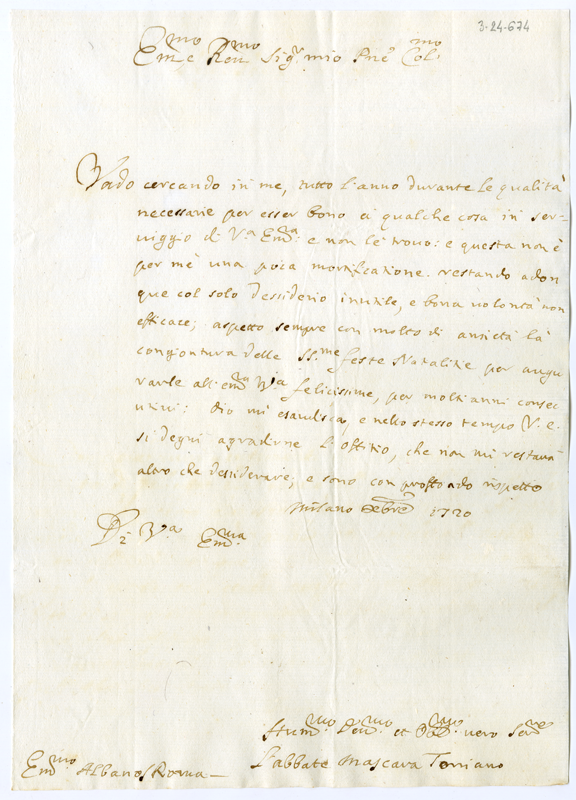 3-24-674
Em.mo e Rev.mo Sig.r mio Pne Col.mo
Vado cercando in me, tutto l'anno durante le qualità
necessarie per esser bono à qualche cosa in ser-
viggio di V.a Em.a: e non le trovo: e questa non è
per mè una poca mortificatione. restando adon
que col solo dessiderio inutile, e bona volontà non
efficace; aspetto sempre con molto di anxietà la
congiontura delle SS.me feste Natalitie per augu
rarle all'em.za V.a felicissime, per molti anni consec
utivi: Dio mi esaudisca, e nello stesso tempo V. e.
si degni agradirne l'offitio, che non mi restarà
altro che dessiderare; e sono con profondo rispetto
Milano Xbre 1720
Di V.a Em.za
Hum.mo Dev.mo et Obb.mo vero Ser.re
Em.mo Albano Roma
L'abbate Mascara Torriano